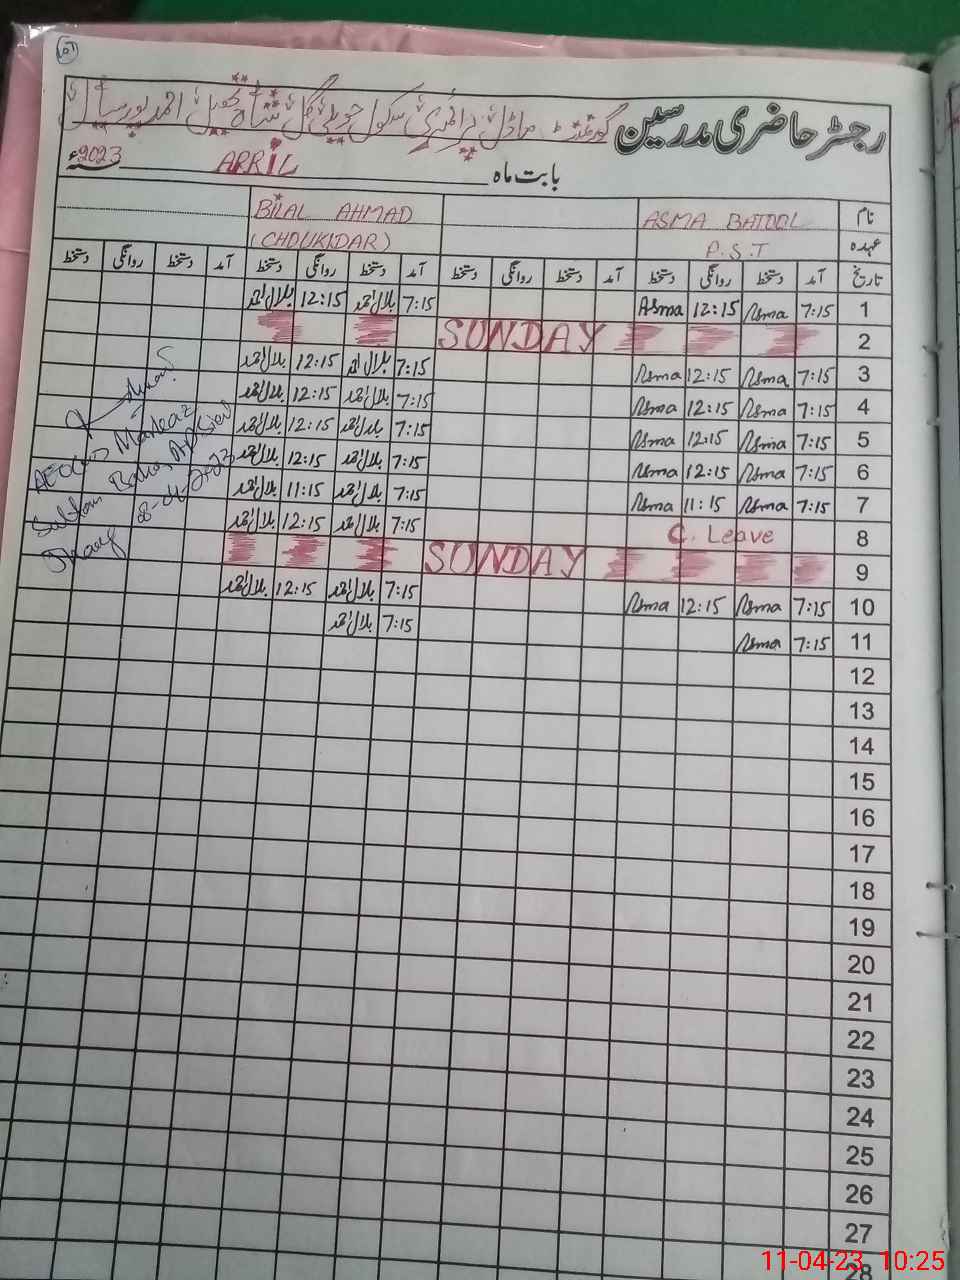 107
رجسٹر حاضری مدرسین گورنمنٹ ماڈل پرائمری سکول حویلی گل شاہ احمد پور سیال
بابت ماہ ARRIL 2023ء
نام ASMA BATOOL BILAL AHMAD
عہدہ P.S.T (CHOUKIDAR)
تاریخ آمد دستخط روانگی دستخط آمد دستخط روانگی دستخط آمد دستخط روانگی دستخط آمد دستخط روانگی دستخط
1 7:15 Asma 12:15 Asma 7:15 بلال احمد 12:15 بلال احمد
2 SUNDAY
3 7:15 Asma 12:15 Asma 7:15 بلال احمد 12:15 بلال احمد
4 7:15 Asma 12:15 Asma 7:15 بلال احمد 12:15 بلال احمد
5 7:15 Asma 12:15 Asma 7:15 بلال احمد 12:15 بلال احمد
6 7:15 Asma 12:15 Asma 7:15 بلال احمد 12:15 بلال احمد
7 7:15 Asma 11:15 Asma 7:15 بلال احمد 11:15 بلال احمد
8 C. Leave 7:15 بلال احمد 12:15 بلال احمد
9 SUNDAY
10 7:15 Asma 12:15 Asma 7:15 بلال احمد 12:15 بلال احمد
11 7:15 Asma 7:15 بلال احمد
12
13
14
15
16
17
18
19
20
21
22
23
24
25
26
27
28
AEO Markaz
Sultan Bahu
Jhang 8-04-2023
11-04-23 10:25